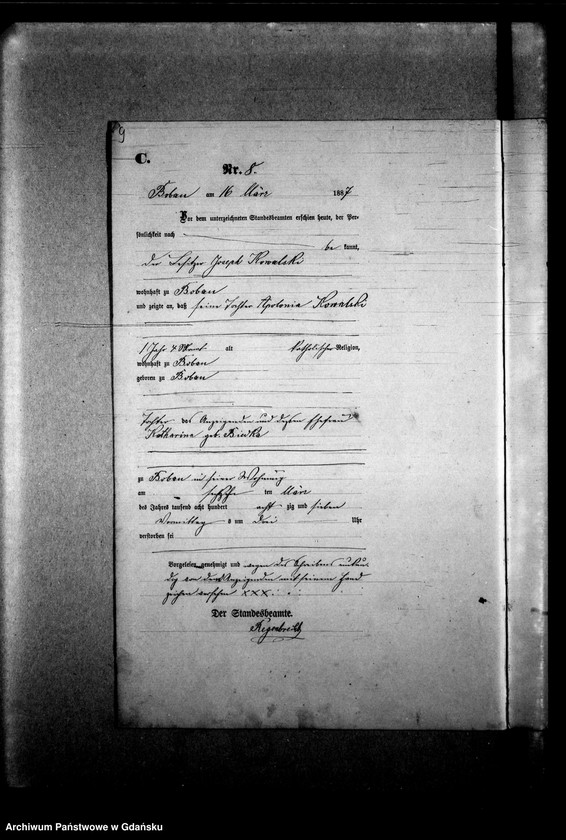 9
C.
Nr. 8.
Boban am 16 März 1887
Vor dem unterzeichneten Standesbeamten erschien heute, der Per-
sönlichkeit nach
be kannt,
der Besitzer Joseph Kowalski
wohnhaft zu Boban
und zeigte an, daß seine Tochter Apolonia Kowalski
1 Jahr 4 Monat alt katholischer Religion,
wohnhaft zu Boban
geboren zu Boban
Tochter des Anzeigenden und dessen Ehefrau
Katharina geb. Biedka
zu Boban in seiner Wohnung
am ten März
des Jahres tausend acht hundert acht zig und sieben
Vormittag s um drei Uhr
verstorben sei
Vorgelesen, genehmigt und wegen des Schreibens unkun-
dig von dem Anzeigenden mit seinem Hand
zeichen versehen XXX
Der Standesbeamte.
Archiwum Państwowe w Gdańsku